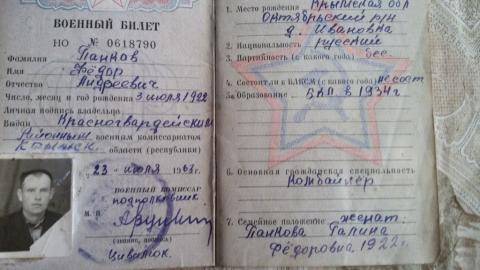 ВОЕННЫЙ БИЛЕТ
НО № 0618790
Фамилия Панков
Имя Фёдор
Отчество Андреевич
Число, месяц и год рождения 5 июля 1922
Личная подпись владельца
Выдан Красногвардейским
Районным военным комиссариатом
Крымск. области (республики)
23 июля 1963 г.
ВОЕННЫЙ КОМИССАР
подполковник
М. П.
(звание, подпись)
Цивилюк.
1. Место рождения Крымская обл
Октябрьский р-н
д. Ивановка
2. Национальность русский
3. Партийность (с какого года) бес.
4. Состоит ли в ВЛКСМ (с какого года) не сост
5. Образование в 1934г
6. Основная гражданская специальность
Комбайнер
7. Семейное положение женат.
Панкова Галина
Фёдоровна 1922г.